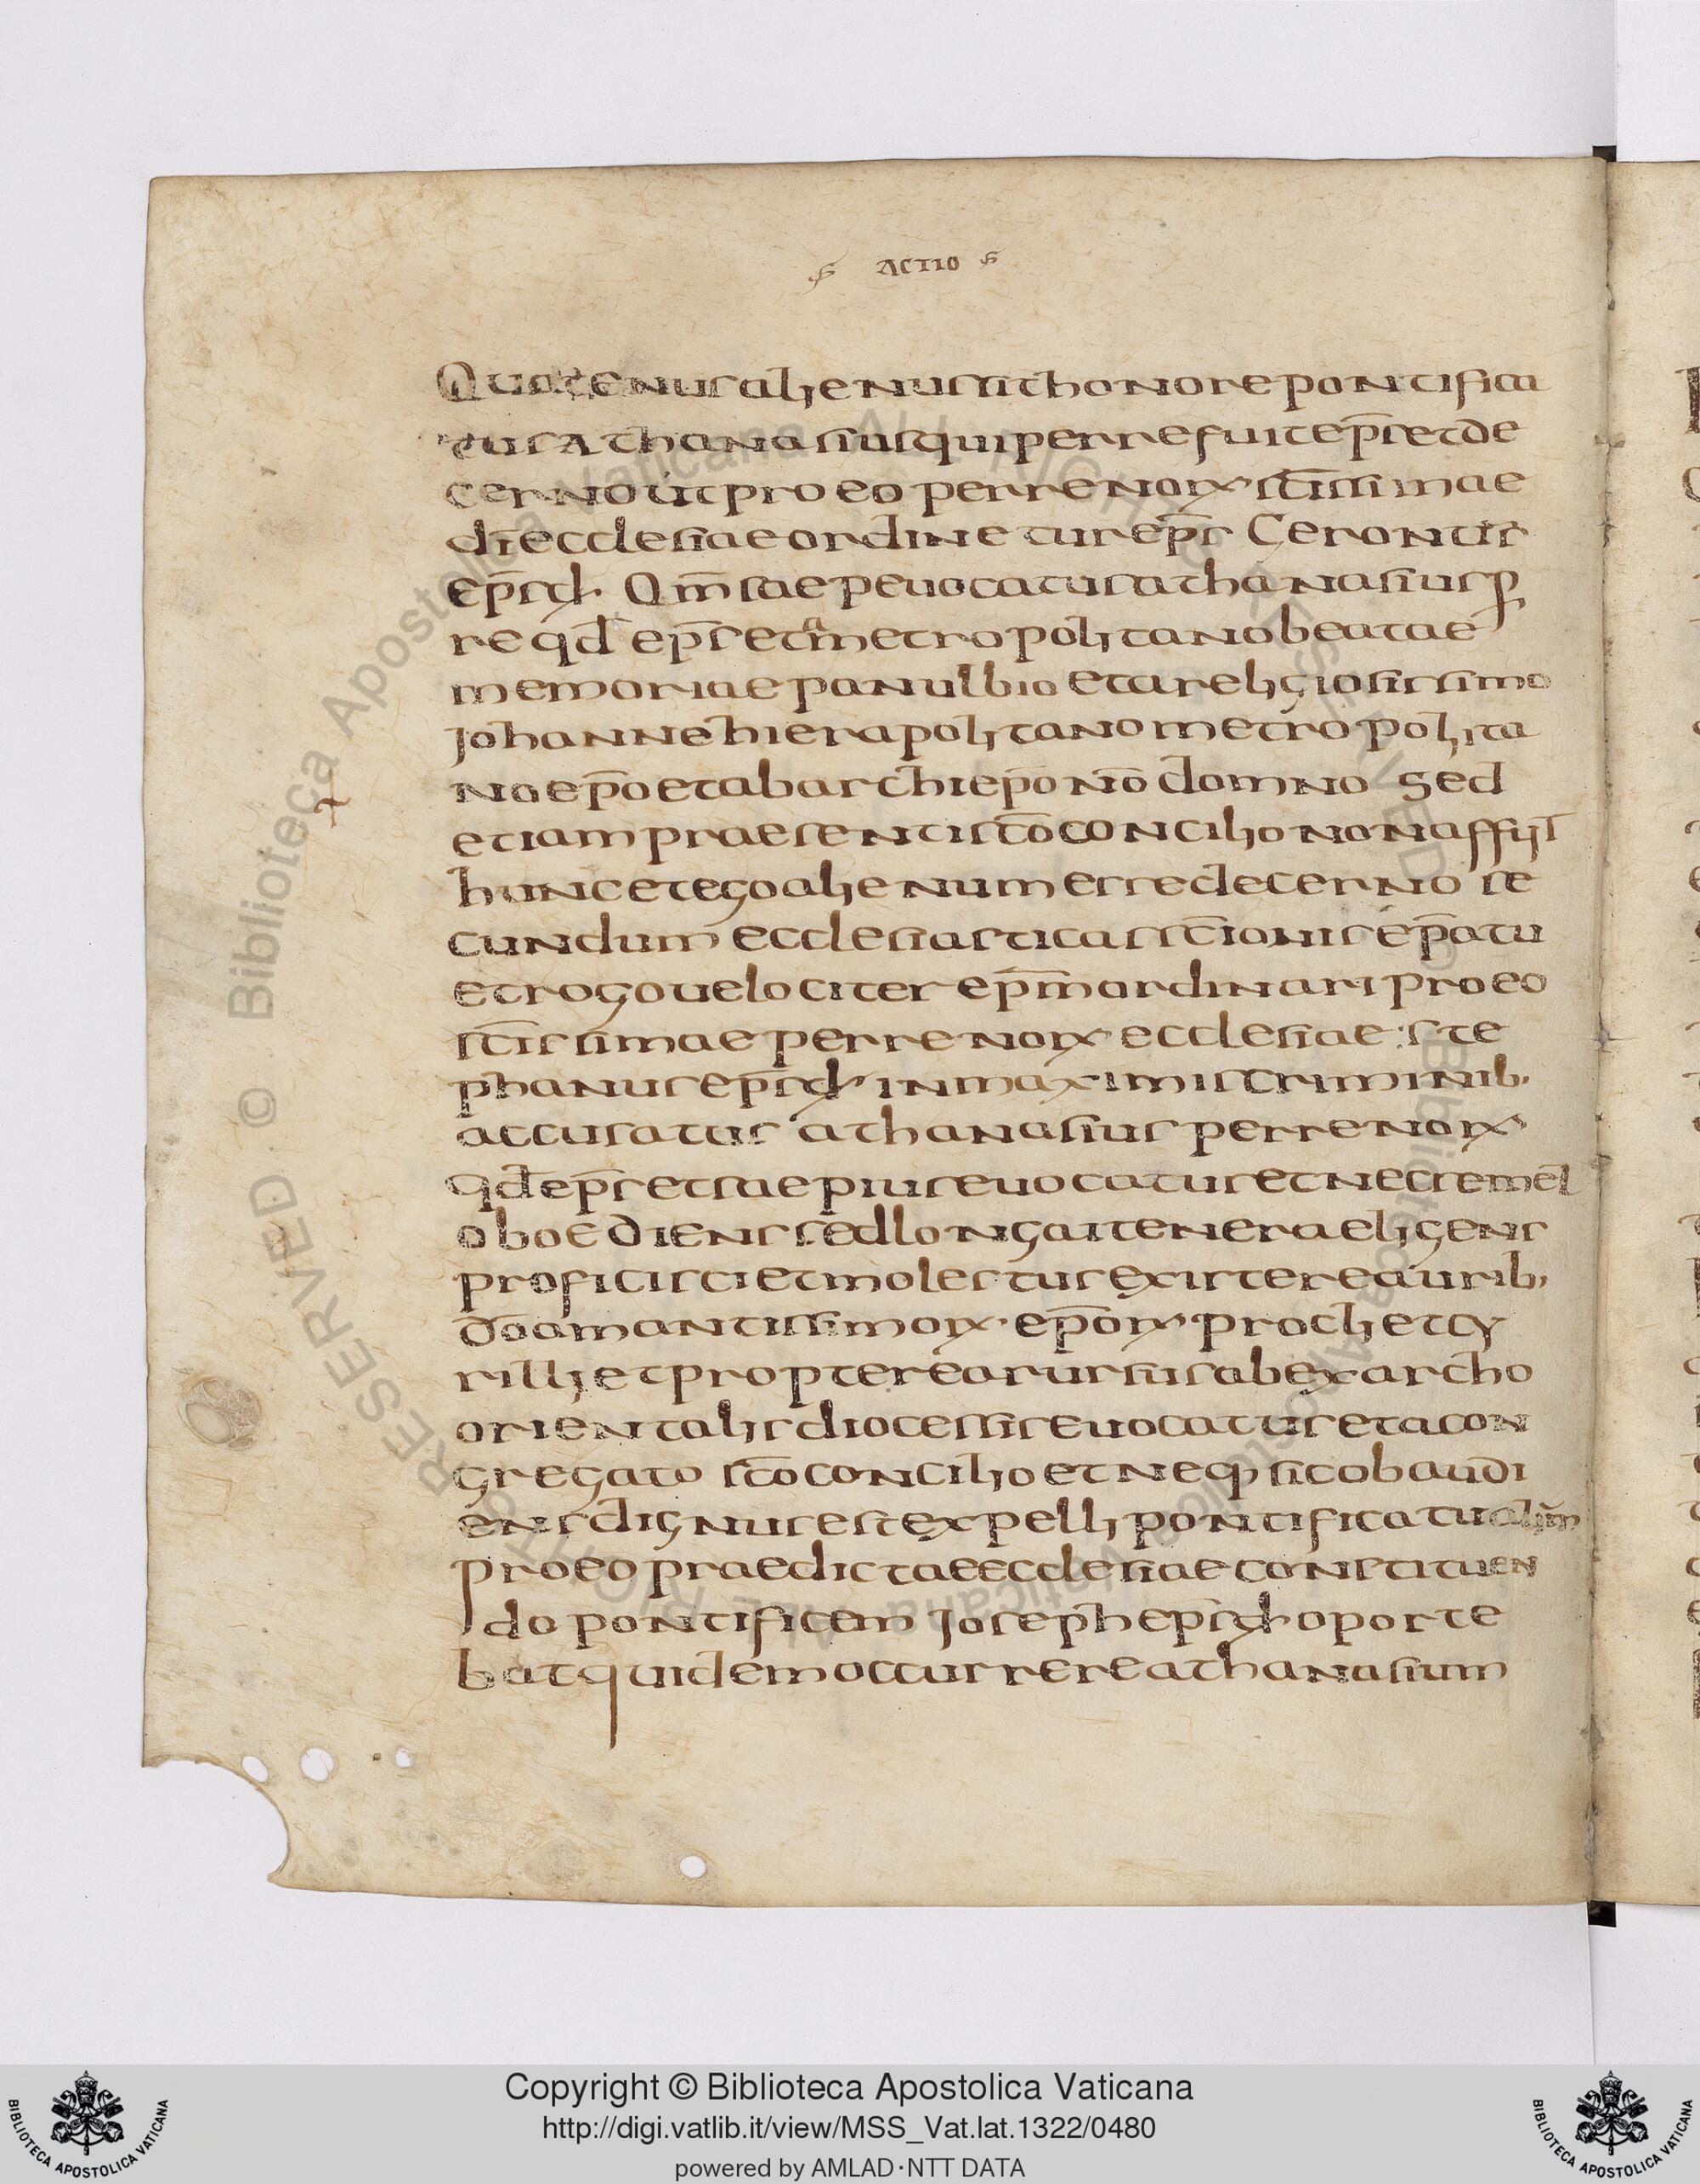 ꟊ ACTIO ꟊ
Quatenus alienus sit honore pontifica
tus Athanasius qui perre fuit ep̄s et de
cerno ut pro eo perrenoꝝ sc̄issimae
dī ecclesiae ordinetur ep̄s Gerontis
ep̄s dx̄ Qm̄ saepe uocatus athanasius p
re qd̄ ep̄s et a metropolitano beatae
memoriae panulbio et a religiosissimo
Johanne hierapolitano metropolita
no ep̄o et ab archiep̄o nō domno Sed
etiam praesenti sc̄o concilio non assist
hunc et ego alienum esse decerno se
cundum ecclesiasticas sc̄ionis ep̄atu
et rogo uelociter ep̄m ordinari pro eo
sc̄issimae perrenoꝝ ecclesiae : Ste
phanus ep̄s dx̄ in maximis criminib·
accusatus athanasius perrenoꝝ
qd̄ ep̄s et saepius euocatus et nec semel
oboediens sed longa itenera eligens
proficisci et molestus existere aurib·
dō amantissimoꝝ ep̄oꝝ procli et cy
rilli et propterea rursus ab exarcho
orientalis diocessis euocatus et a con
gregato sc̄o concilio et neq· sic obaudi
ens dignus est expelli pontificatu alium
pro eo praedictae ecclesiae constituen
do pontificem Joseph ep̄s dx̄ oporte
bat quidem occurrere athanasium
Copyright © Biblioteca Apostolica Vaticana
http://digi.vatlib.it/view/MSS_Vat.lat.1322/0480
powered by AMLAD·NTT DATA
BIBLIOTECA APOSTOLICA VATICANA
BIBLIOTECA APOSTOLICA VATICANA